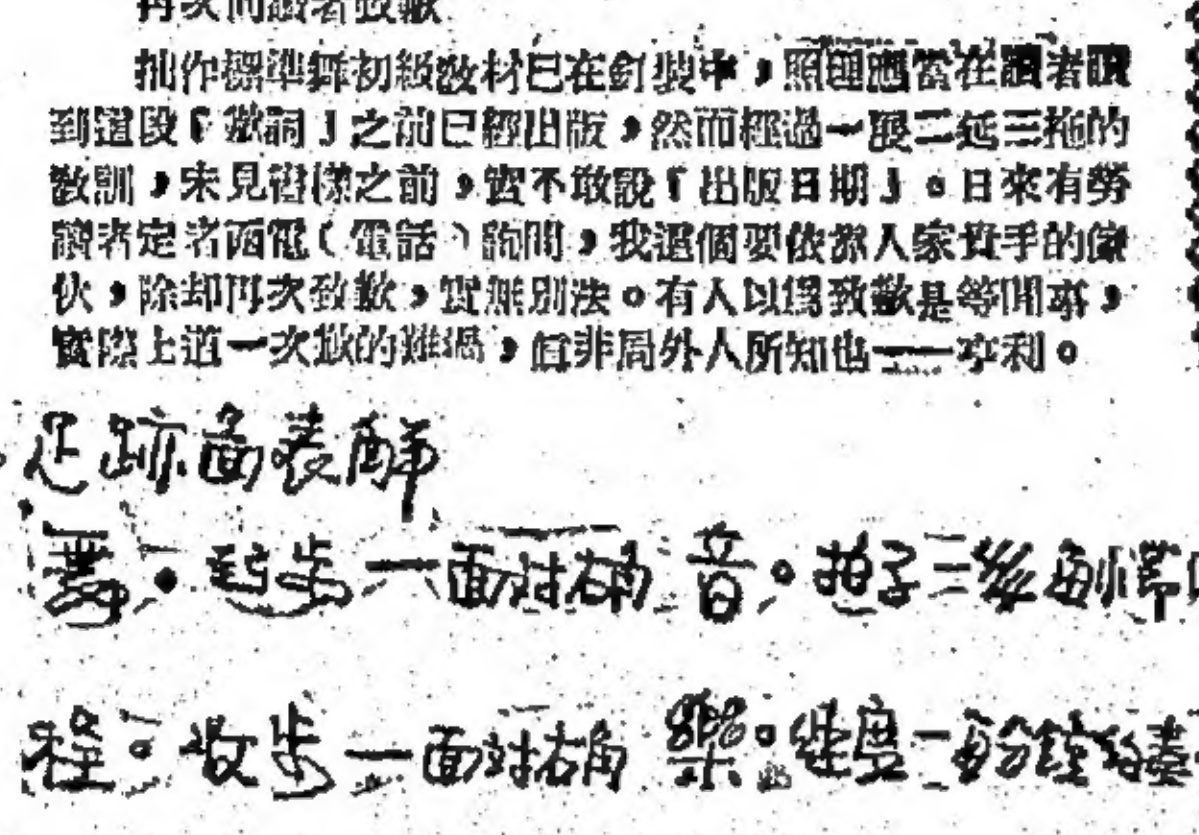 再次向讀者致歉
拙作標準舞初級教材已在釘裝中，照理應當在讀者讀
到這段「歉詞」之前已經出版，然而經過一驟二延三拖的
教訓，未見書樣之前，實不敢說「出版日期」。日來有勞
讀者定者面電（電話）詢問，我這個要依靠人家貴手的傢
伙，除却再次致歉，實無別法。有人以爲致歉是等閒事，
實際上道一次歉的難過，眞非局外人所知也——亨利。
足跡面表解
舞。起步一面对右角 音。拍子二
程。收步一面对右角 樂。速度一每分鐘